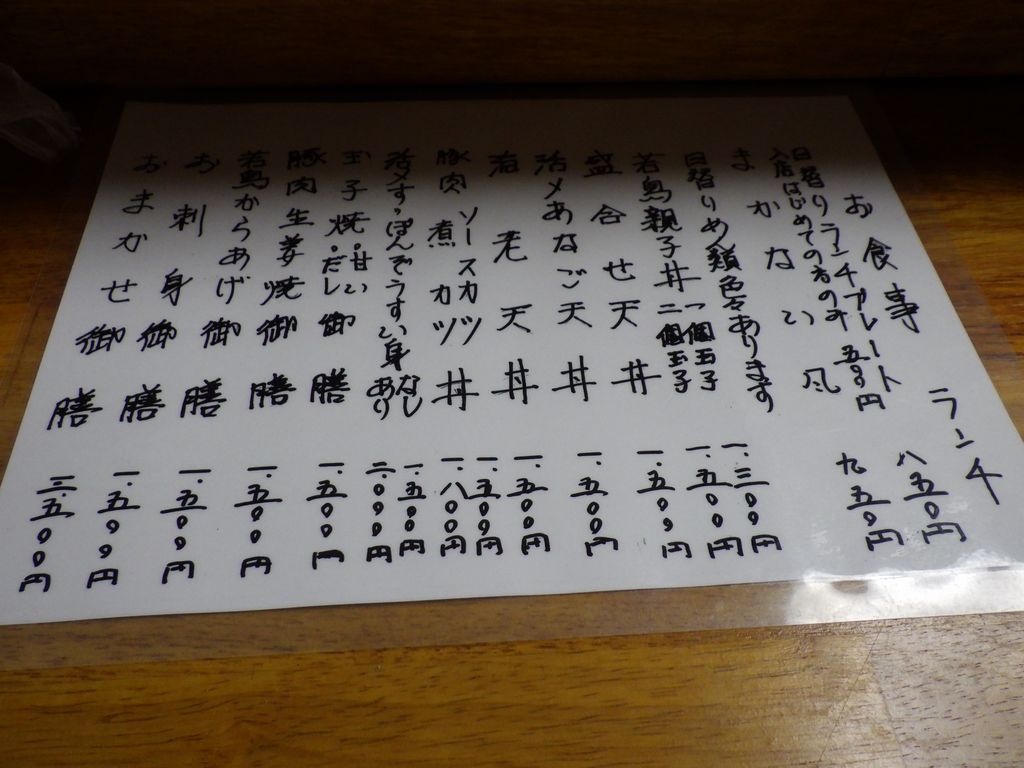 お食事 ランチ
日替りランチプレート 八五〇円
入店はじめての方のみ 五〇〇円
まかない風 九五〇円
日替りめん類色々あります
若鳥親子丼 一個玉子 一.三〇〇円
二個玉子 一.五〇〇円
盛合せ天丼 一.五〇〇円
活〆あなご天丼 一.五〇〇円
海老天丼 一.五〇〇円
豚肉 ソースカツ 一.五〇〇円
煮カツ丼 一.八〇〇円
活〆すっぽんぞうすい 身 なし 一.五〇〇円
あり 二.〇〇〇円
玉子焼.甘い.だし 御膳 一.五〇〇円
豚肉生姜焼御膳 一.五〇〇円
若鳥からあげ御膳 一.五〇〇円
お刺身御膳 一.五〇〇円
おまかせ御膳 二.五〇〇円